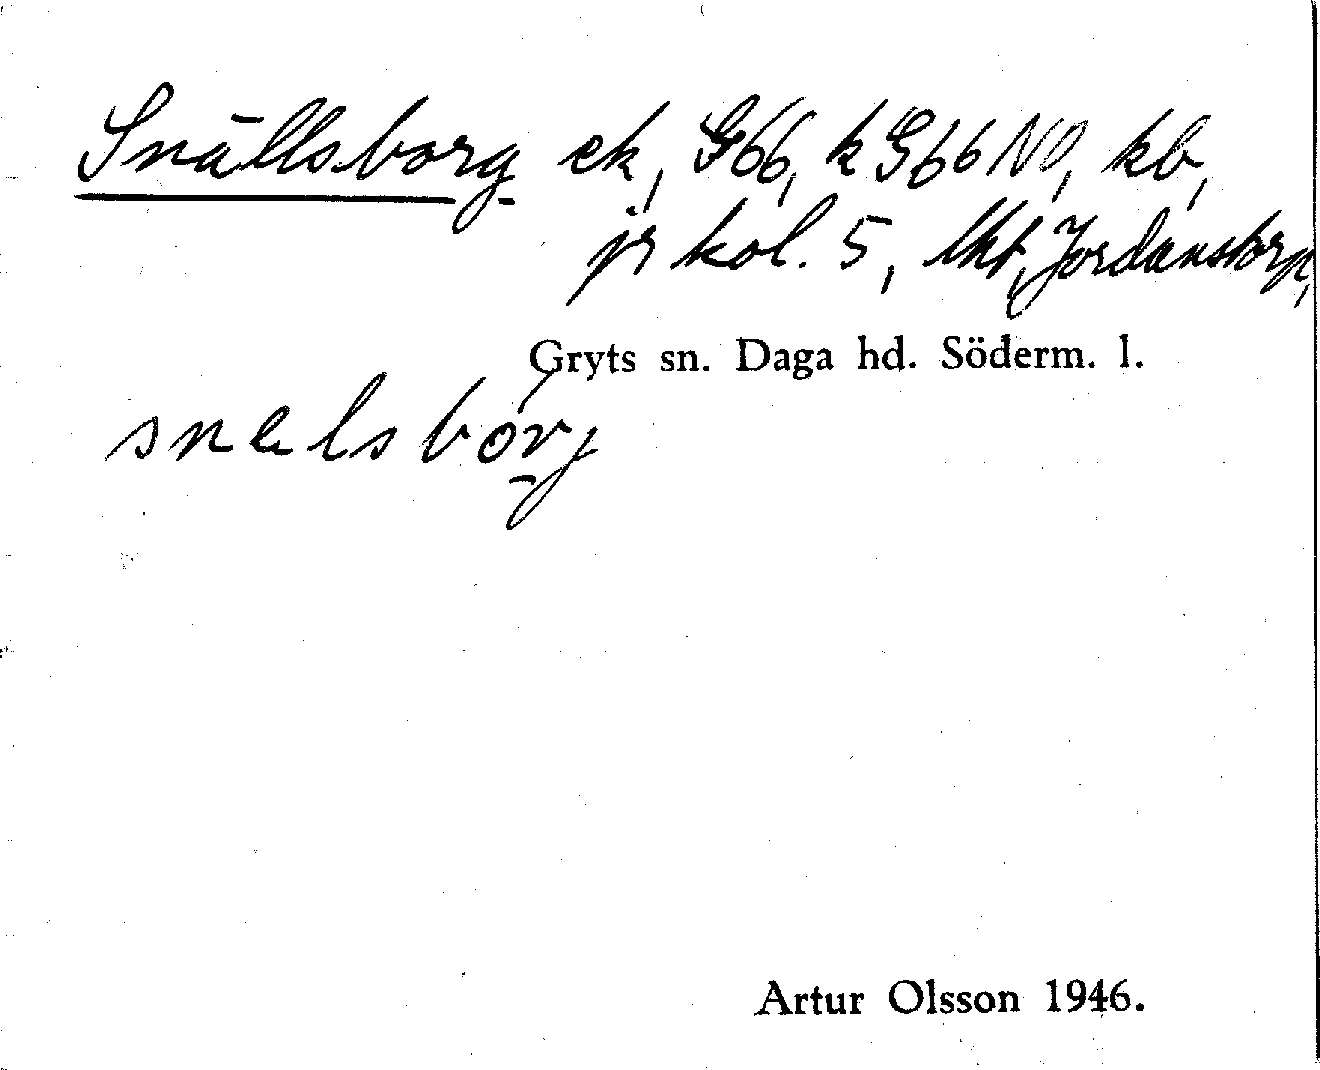 Snällsborg ek, G66, k G66 NO, kb,
jr kol. 5, lht, Jordanstorp,
Gryts sn. Daga hd. Söderm. l.
snelsborj
Artur Olsson 1946.